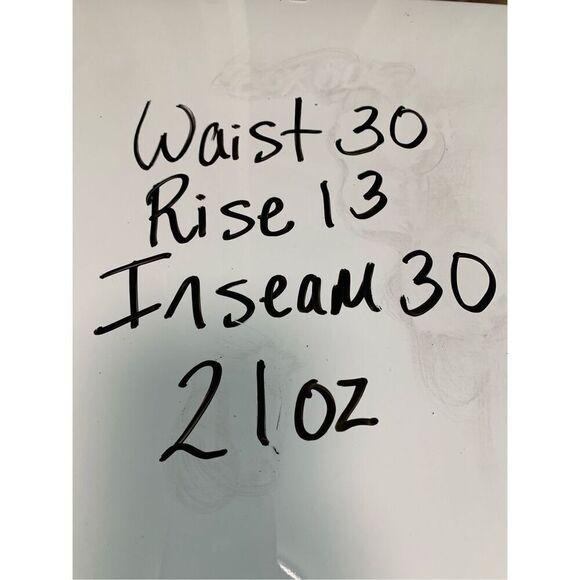 Waist 30
Rise 13
Inseam 30
21oz